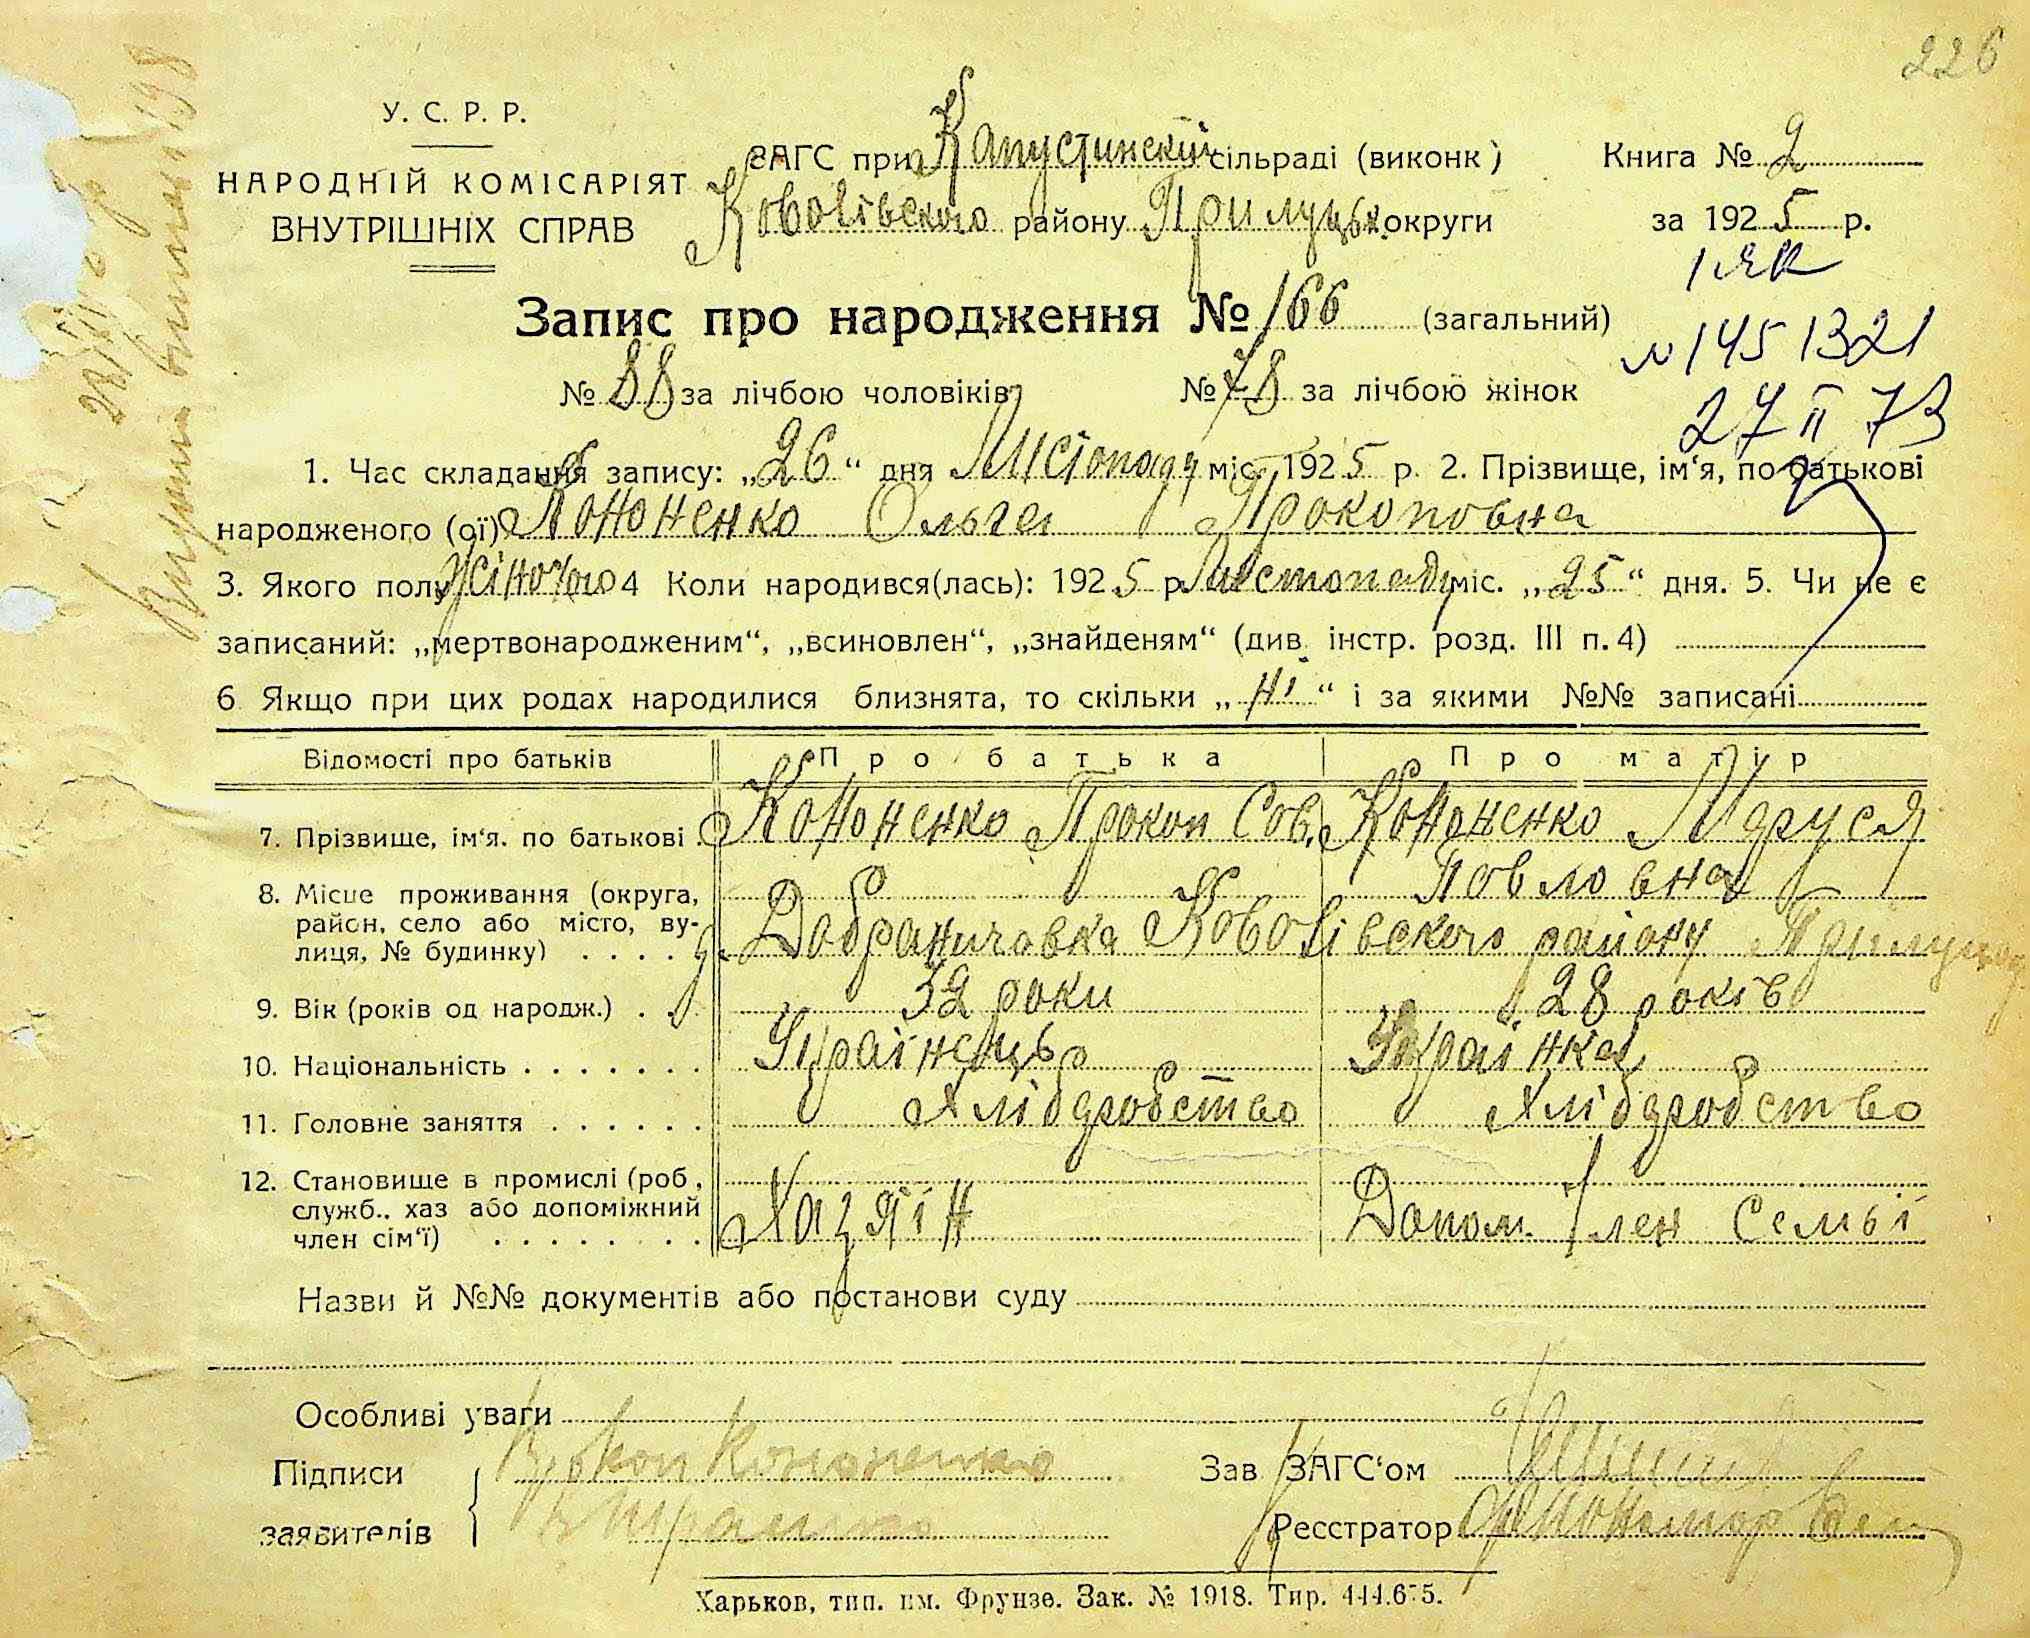 226
У. С. Р. Р.
НАРОДНІЙ КОМІСАРІЯТ
ВНУТРІШНІХ СПРАВ
ЗАГС при Капустинский сільраді (виконк)
Ковалівского району Прилуцьк. округи
Книга № 2
за 1925 р.
№ 1451321
27 II 73
Запис про народження № 166 (загальний)
№ 88 за лічбою чоловіків № 78 за лічбою жінок
1. Час складання запису: „26“ дня Листопаду міс. 1925 р. 2. Прізвище, ім‘я, по батькові
народженого (ої) Кононенко Ольга Прокоповна
3. Якого полу жіночого 4 Коли народився(лась): 1925 р. Листопаду міс. „25“ дня. 5. Чи не є
записаний: „мертвонародженим“, „всиновлен“, „знайденям“ (див. інстр. розд. III п. 4)
6. Якщо при цих родах народилися близнята, то скільки „Ні“ і за якими №№ записані
Відомості про батьків Про батька Про матір
7. Прізвище, ім‘я. по батькові . Кононенко Прокоп Сов. Кононенко Маруся
Повловна
8. Місце проживання (округа,
район, село або місто, ву-
лиця, № будинку) . . . . Добраничовка Ковалівского району
9. Вік (років од народж.) . . 32 роки 28 років
10. Національність . . . . . . . Українець Українка
11. Головне заняття . . . . . . Хлібдробство Хлібдробство
12. Становище в промислі (роб,
служб., хаз або допоміжний
член сім‘ї) . . . . . . . Хазяїн Допом. Член Семьї
Назви й №№ документів або постанови суду
Особливі уваги
Підписи Прокоп Кононенко
заявителів
Зав ЗАГС‘ом
Реєстратор
Харьков, тип. им. Фрунзе. Зак. № 1918. Тир. 444.675.